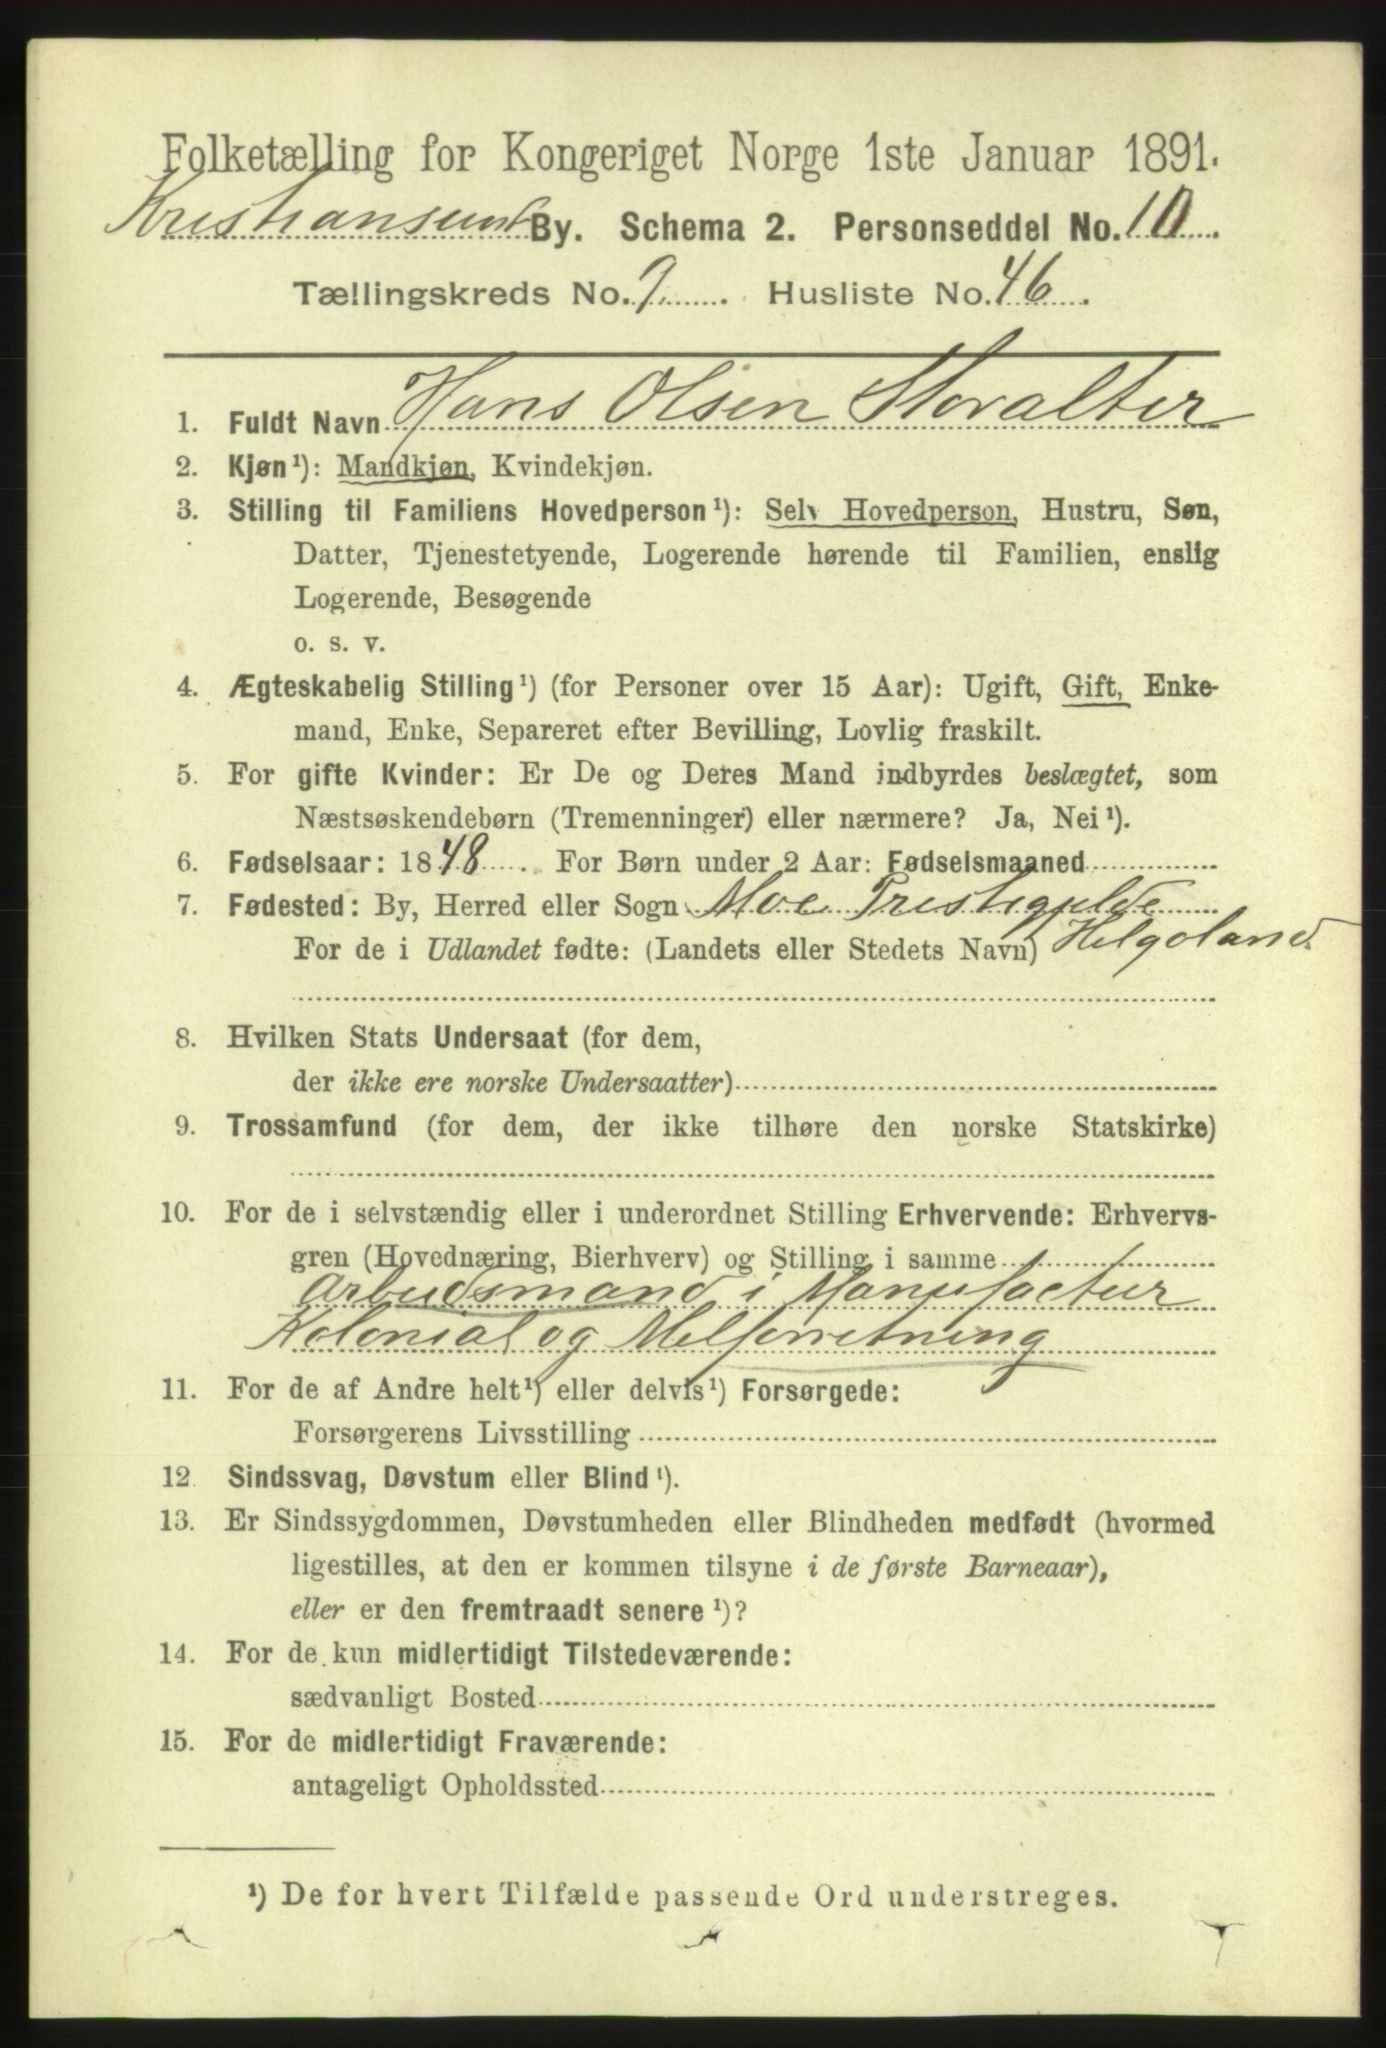 Folketælling for Kongeriget Norge 1ste Januar 1891.
Kristiansund By. Schema 2. Personseddel No. 10.
Tællingskreds No. 9. Husliste No. 46.
1. Fuldt Navn Hans Olsen Storalter
2. Kjøn¹): Mandkjøn, Kvindekjøn.
3. Stilling til Familiens Hovedperson¹): Selv Hovedperson, Hustru, Søn,
Datter, Tjenestetyende, Logerende hørende til Familien, enslig
Logerende, Besøgende
o. s. v.
4. Ægteskabelig Stilling¹) (for Personer over 15 Aar): Ugift, Gift, Enke-
mand, Enke, Separeret efter Bevilling, Lovlig fraskilt.
5. For gifte Kvinder: Er De og Deres Mand indbyrdes beslægtet, som
Næstsøskendebørn (Tremenninger) eller nærmere? Ja, Nei¹).
6. Fødselsaar: 1848. For Børn under 2 Aar: Fødselsmaaned
7. Fødested: By, Herred eller Sogn Moe Prestegjelde
For de i Udlandet fødte: (Landets eller Stedets Navn) Helgoland
8. Hvilken Stats Undersaat (for dem,
der ikke ere norske Undersaatter)
9. Trossamfund (for dem, der ikke tilhøre den norske Statskirke)
10. For de i selvstændig eller i underordnet Stilling Erhvervende: Erhvervs-
gren (Hovednæring, Bierhverv) og Stilling i samme
Arbeidsmand i Manufactur
Kolonial og Melforretning
11. For de af Andre helt¹) eller delvis¹) Forsørgede:
Forsørgerens Livsstilling
12. Sindssvag, Døvstum eller Blind¹).
13. Er Sindssygdommen, Døvstumheden eller Blindheden medfødt (hvormed
ligestilles, at den er kommen tilsyne i de første Barneaar),
eller er den fremtraadt senere¹)?
14. For de kun midlertidigt Tilstedeværende:
sædvanligt Bosted
15. For de midlertidigt Fraværende:
antageligt Opholdssted
¹) De for hvert Tilfælde passende Ord understreges.